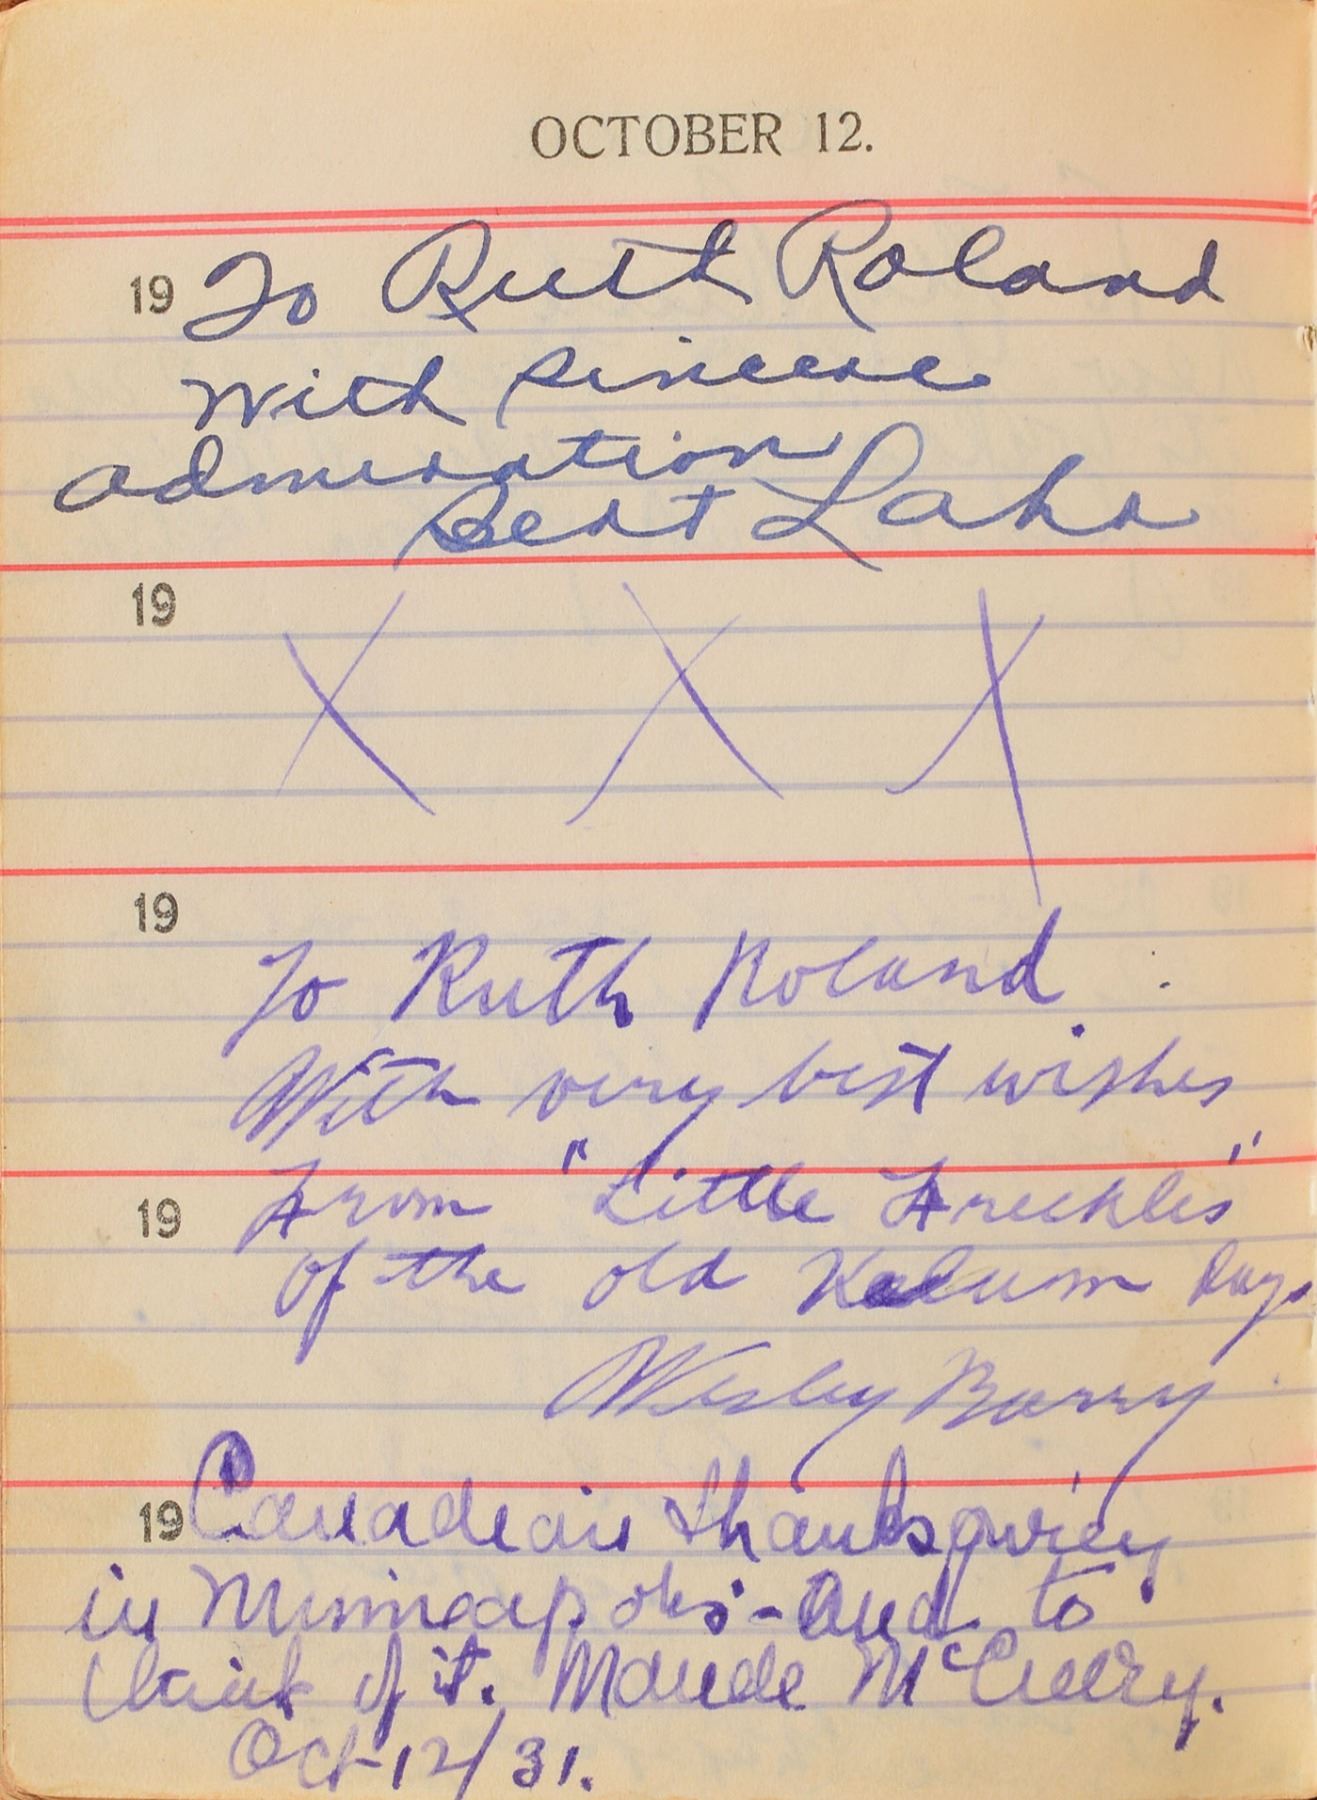 OCTOBER 12.
19 To Ruth Roland
With sincere
admiration
Bert Lahr
19
X X X
19
To Ruth Roland
With very best wishes
19 From "Little Freckles"
of the old Kalum days
Wesley Barry
19 Canadian thanksgiving
in Minneapolis - And to
think of it. Maude McCreery.
Oct 12/31.